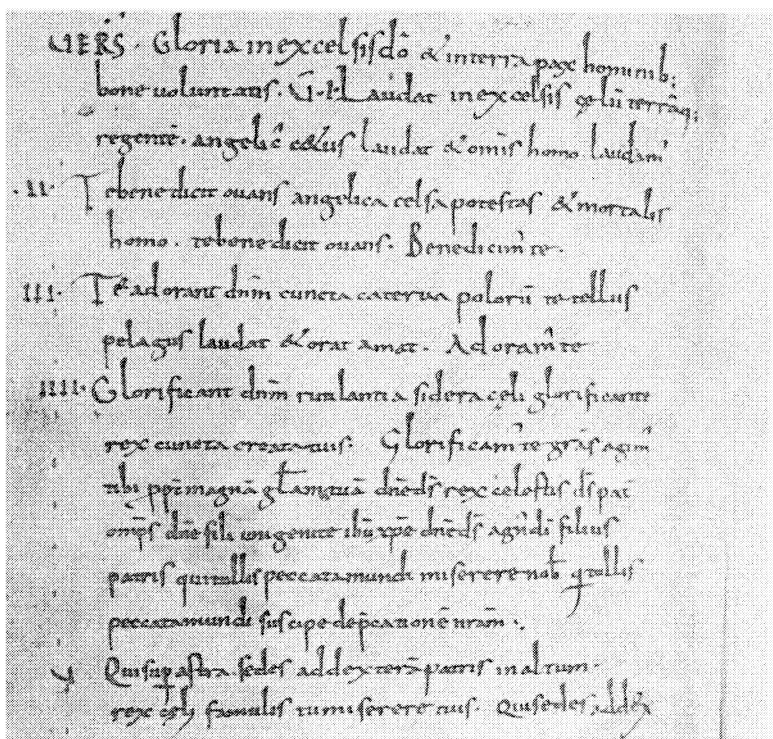 VERS. Gloria in excelsis dō & in terra pax hominib;
bone uoluntatis. G. I. Laudat in excelsis cęlū terrāq;
regentē. angelic' cetus laudat & omīs homo laudam'
.II. Te benedicit ouans angelica celsa potestas & mortalis
homo. te benedicit ouans. Benedicim' te.
III. Te adorant dnm cuncta caterua polorū te tellus
pelagus laudat & orat amat. Adoram' te
IIII. Glorificant dnm rutilantia sidera cęli glorificant te
rex cuncta creata tuis. Glorificam' te grās agim'
tibi ppt magnā glam tuā dnē ds rex celestis ds pat
omps dnē fili unigenite ihū xpe dnē ds agn' di filius
patris qui tollis peccata mundi miserere nob qi tollis
peccata mundi suscipe depcationē nram.
V Qui sup astra sedes ad dexterā patris in altum.
rex cęli famulis tu miserere tuis. Qui sedes ad dex